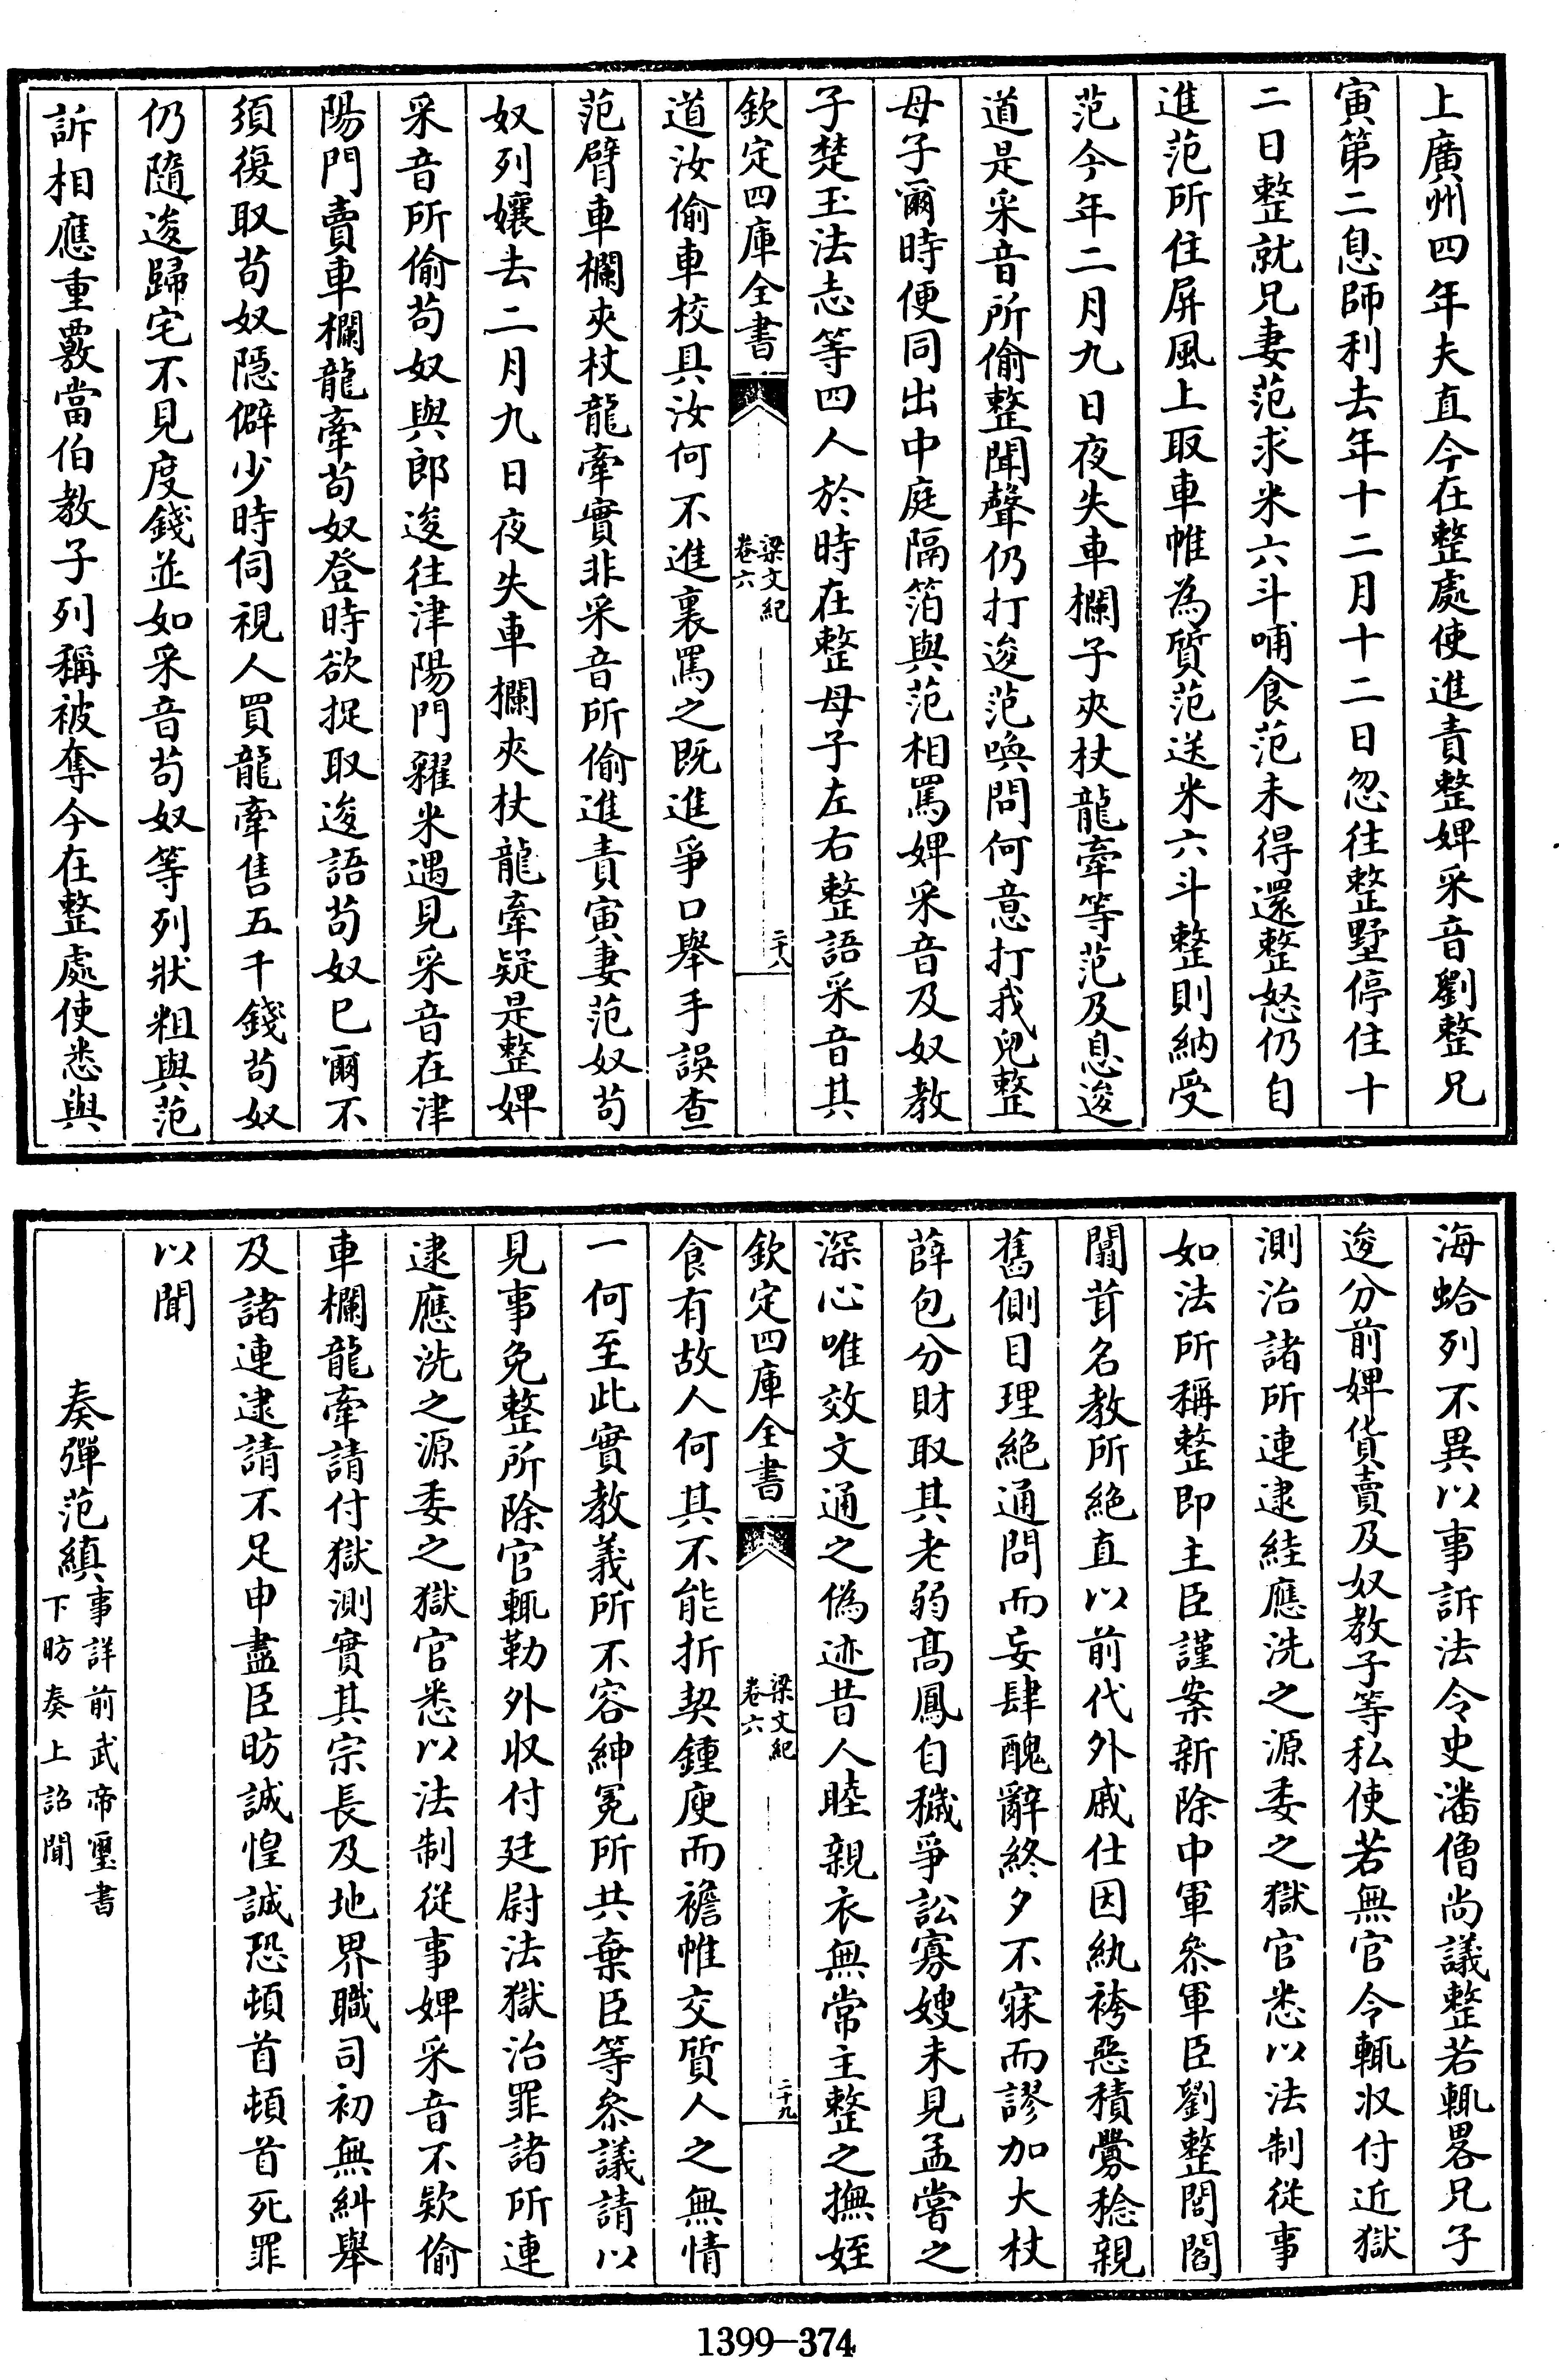 上廣州四年夫直今在整處使進責整婢采音劉整兄
寅第二息師利去年十二月十二日忽往整墅停住十
二日整就兄妻范求米六斗哺食范未得還整怒仍自
進范所住屏風上取車帷為質范送米六斗整則納受
范今年二月九日夜失車欄子夾杖龍牽等范及息逡
道是采音所偷整聞聲仍打逡范喚問何意打我兒整
母子爾時便同出中庭隔箔與范相罵婢采音及奴教
子楚玉法志等四人於時在整母子左右整語采音其
欽定四庫全書
梁文紀
卷六
二十八
道汝偷車校具汝何不進裏罵之既進爭口舉手誤查
范臂車欄夾杖龍牽實非采音所偷進責寅妻范奴苟
奴列孃去二月九日夜失車欄夾杖龍牽疑是整婢
采音所偷苟奴與郎逡往津陽門糴米遇見采音在津
陽門賣車欄龍牽苟奴登時欲捉取逡語苟奴已爾不
須復取苟奴隱僻少時伺視人買龍牽售五千錢苟奴
仍隨逡歸宅不見度錢並如采音苟奴等列狀粗與范
訴相應重覈當伯教子列稱被奪今在整處使悉與
海蛤列不異以事訴法令史潘僧尚議整若輒畧兄子
逡分前婢貨賣及奴教子等私使若無官令輒收付近獄
測治諸所連逮絓應洗之源委之獄官悉以法制從事
如法所稱整即主臣謹案新除中軍參軍臣劉整閭閻
闒茸名教所絶直以前代外戚仕因紈袴惡積釁稔親
舊側目理絶通問而妄肆醜辭終夕不寐而謬加大杖
薛包分財取其老弱高鳳自穢爭訟寡嫂未見孟嘗之
深心唯效文通之偽迹昔人睦親衣無常主整之撫姪
欽定四庫全書
梁文紀
卷六
二十九
食有故人何其不能折契鍾庾而襜帷交質人之無情
一何至此實教義所不容紳冕所共棄臣等參議請以
見事免整所除官輒勒外收付廷尉法獄治罪諸所連
逮應洗之源委之獄官悉以法制從事婢采音不欵偷
車欄龍牽請付獄測實其宗長及地界職司初無糾舉
及諸連逮請不足申盡臣昉誠惶誠恐頓首頓首死罪
以聞
奏彈范縝
事詳前武帝璽書
下昉奏上詔聞
1399-374